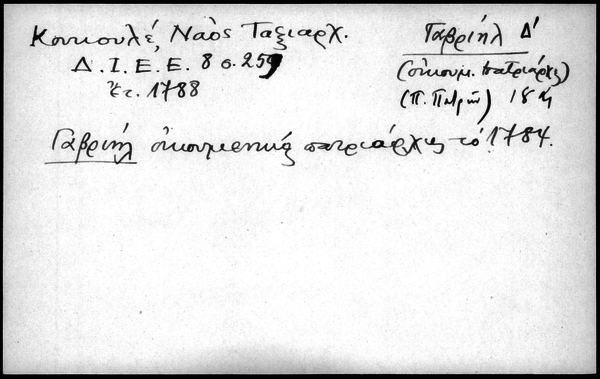 Κουκουλέ, Ναὸς Ταξιαρχ.
Δ.Ι.Ε.Ε. 8 σ. 259
ἔτ. 1788
Γαβριήλ Δ'
(οἰκουμ. πατριάρχης)
(Π. Πατρῶν) 18 η
Γαβριήλ οἰκουμενικός πατριάρχης τό 1784.